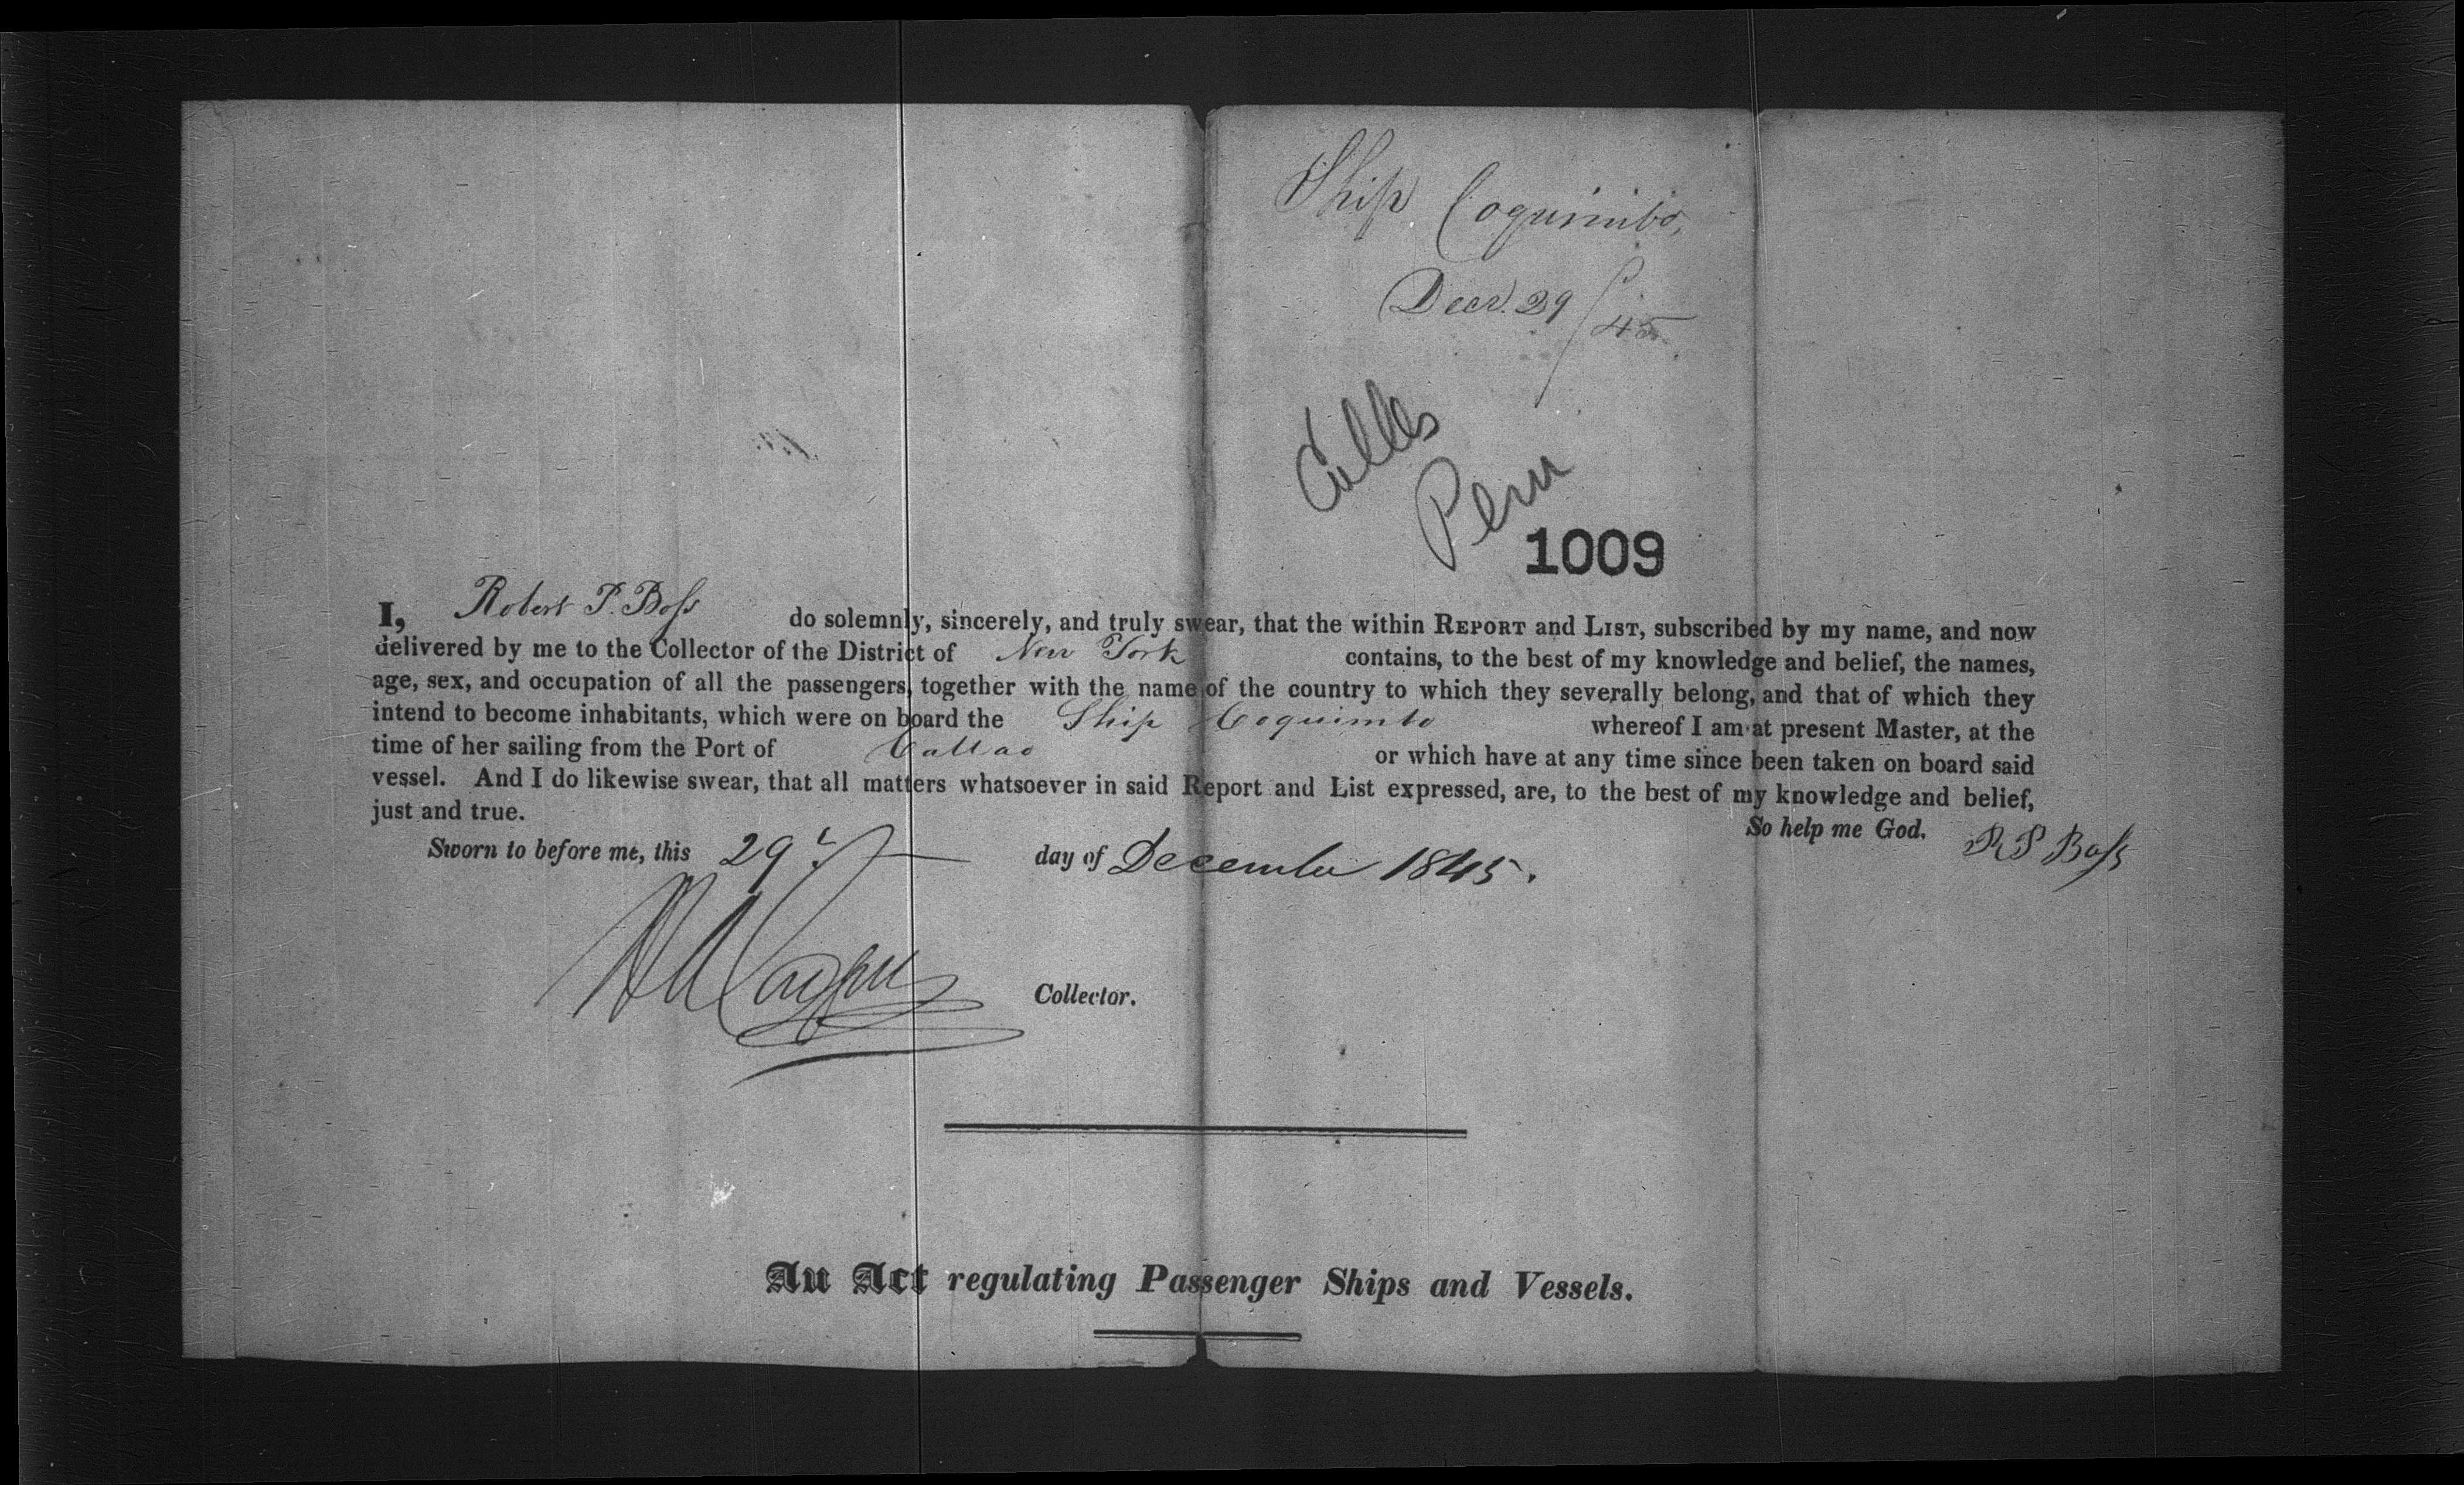 Ship Coquimbo,
Decr. 29/45
Peru
1009
I, Robert P. Boss do solemnly, sincerely, and truly swear, that the within REPORT and LIST, subscribed by my name, and now
delivered by me to the Collector of the District of New York contains, to the best of my knowledge and belief, the names,
age, sex, and occupation of all the passengers, together with the name of the country to which they severally belong, and that of which they
intend to become inhabitants, which were on board the Ship Coquimbo whereof I am at present Master, at the
time of her sailing from the Port of Callao or which have at any time since been taken on board said
vessel. And I do likewise swear, that all matters whatsoever in said Report and List expressed, are, to the best of my knowledge and belief,
just and true.
So help me God. R P Boss
Sworn to before me, this 29th day of December 1845.
Collector.
An Act regulating Passenger Ships and Vessels.